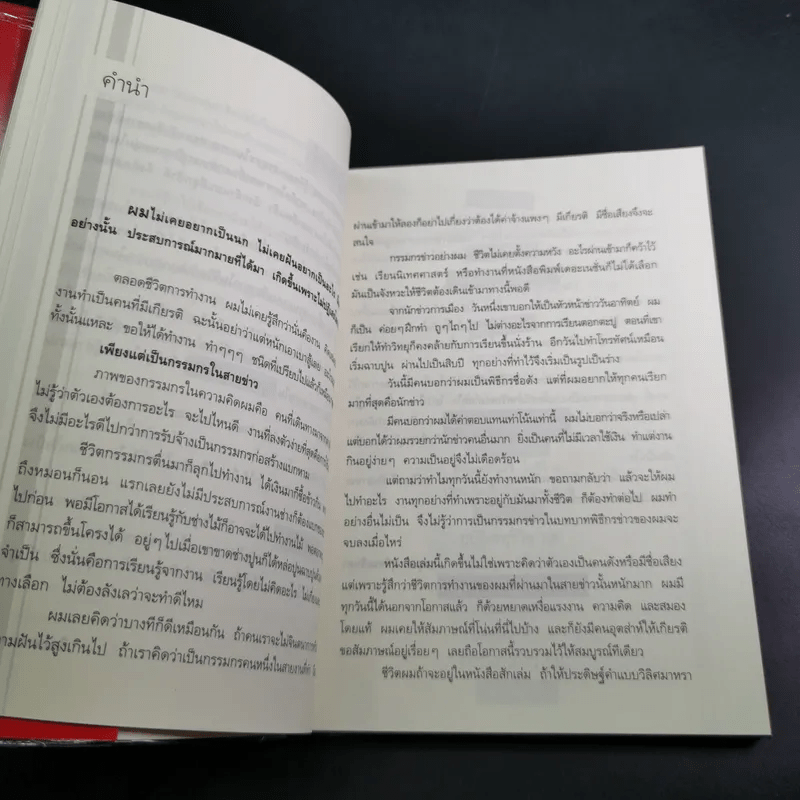 คำนำ
ผมไม่เคยอยากเป็นนก ไม่เคยฝันอยากเป็นอะไร
อย่างนั้น ประสบการณ์มากมายที่ได้มา เกิดขึ้นเพราะ
ตลอดชีวิตการทำงาน ผมไม่เคยรู้สึกว่านั่นคืองาน
งานทำเป็นคนที่มีเกียรติ ฉะนั้นอย่าว่าแต่หนักเอาเบาสู้เลย
ทั้งนั้นแหละ ขอให้ได้ทำงาน ทำๆๆๆ ชนิดที่เปรียบไปแล้ว
เพียงแต่เป็นกรรมกรในสายข่าว
ภาพของกรรมกรในความคิดผมคือ คนที่เดินทางมาจาก
ไม่รู้ว่าตัวเองต้องการอะไร จะไปไหนดี งานที่ลงตัวง่ายที่สุดคือ
จึงไม่มีอะไรดีไปกว่าการรับจ้างเป็นกรรมกรก่อสร้างแบกหาม
ชีวิตกรรมกรตื่นมาก็ลุกไปทำงาน ได้เงินมาก็ซื้อข้าวกิน
ถึงหมอนก็นอน แรกเลยยังไม่มีประสบการณ์งานช่างก็ต้องแบก
ไปก่อน พอมีโอกาสได้เรียนรู้กับช่างไม้ก็อาจจะได้ไปทำงานไม้
ก็สามารถขึ้นโครงได้ อยู่ๆ ไปเมื่อเขาขาดช่างปูนก็ได้หล่อปูนฉาบปูน
จำเป็น ซึ่งนั่นคือการเรียนรู้จากงาน เรียนรู้โดยไม่คิดอะไร
ทางเลือก ไม่ต้องลังเลว่าจะทำดีไหม
ผมเลยคิดว่าบางทีก็ดีเหมือนกัน ถ้าคนเราจะไม่จินตนาการ
ความฝันไว้สูงเกินไป ถ้าเราคิดว่าเป็นกรรมกรคนหนึ่งในสายงานที่ทำ
ผ่านเข้ามาให้ลองก็อย่าไปเกี่ยงว่าต้องได้ค่าจ้างแพงๆ มีเกียรติ มีชื่อเสียงจึงจะ
สนใจ
กรรมกรข่าวอย่างผม ชีวิตไม่เคยตั้งความหวัง อะไรผ่านเข้ามาก็คว้าไว้
เช่น เรียนนิเทศศาสตร์ หรือทำงานที่หนังสือพิมพ์เดอะเนชั่นก็ไม่ได้เลือก
มันเป็นจังหวะให้ชีวิตต้องเดินเข้ามาทางนี้พอดี
จากนักข่าวการเมือง วันหนึ่งเขาบอกให้เป็นหัวหน้าข่าววันอาทิตย์ ผม
ก็เป็น ค่อยๆ ฝึกทำ ถูๆ ไถๆ ไป ไม่ต่างอะไรจากการเรียนตอกตะปู ตอนที่เขา
เรียกให้ทำวิทยุก็คงคล้ายกับการเรียนขึ้นนั่งร้าน อีกวันไปทำโทรทัศน์เหมือน
เริ่มฉาบปูน ผ่านไปเป็นสิบปี ทุกอย่างที่ทำไว้จึงเริ่มเป็นรูปเป็นร่าง
วันนี้มีคนบอกว่าผมเป็นพิธีกรชื่อดัง แต่ที่ผมอยากให้ทุกคนเรียก
มากที่สุดคือนักข่าว
มีคนบอกว่าผมได้ค่าตอบแทนเท่าโน้นเท่านี้ ผมไม่บอกว่าจริงหรือเปล่า
แต่บอกได้ว่าผมรวยกว่านักข่าวคนอื่นมาก ยิ่งเป็นคนที่ไม่มีเวลาใช้เงิน ทำแต่งาน
กินอยู่ง่ายๆ ความเป็นอยู่จึงไม่เดือดร้อน
แต่ถามว่าทำไมทุกวันนี้ยังทำงานหนัก ขอถามกลับว่า แล้วจะให้ผม
ไปทำอะไร งานทุกอย่างที่ทำเพราะอยู่กับมันมาทั้งชีวิต ก็ต้องทำต่อไป ผมทำ
อย่างอื่นไม่เป็น จึงไม่รู้ว่าการเป็นกรรมกรข่าวในบทบาทพิธีกรข่าวของผมจะ
จบลงเมื่อไหร่
หนังสือเล่มนี้เกิดขึ้นไม่ใช่เพราะคิดว่าตัวเองเป็นคนดังหรือมีชื่อเสียง
แต่เพราะรู้สึกว่าชีวิตการทำงานของผมที่ผ่านมาในสายข่าวนั้นหนักมาก ผมมี
ทุกวันนี้ได้นอกจากโอกาสแล้ว ก็ด้วยหยาดเหงื่อแรงงาน ความคิด และสมอง
โดยแท้ ผมเคยให้สัมภาษณ์ที่โน่นที่นี่ไปบ้าง และก็ยังมีคนอุตส่าห์ให้เกียรติ
ขอสัมภาษณ์อยู่เรื่อยๆ เลยถือโอกาสนี้รวบรวมไว้ให้สมบูรณ์ทีเดียว
ชีวิตผมถ้าจะอยู่ในหนังสือสักเล่ม ถ้าให้ประดิษฐ์คำแบบวิลิศมาหรา